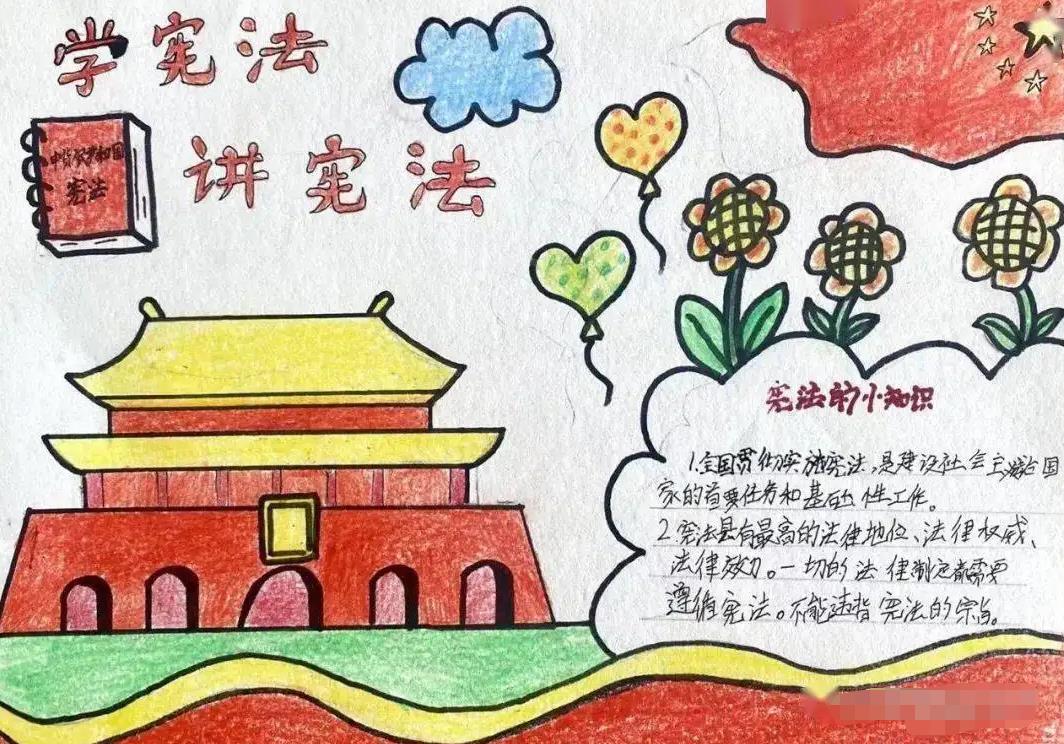 学宪法
讲宪法
中华人民共和国
宪法
宪法的小知识
1.全国贯彻实施宪法,是建设社会主义法治国
家的首要任务和基础性工作。
2.宪法具有最高的法律地位、法律权威、
法律效力。一切的法律制定都需要
遵循宪法。不能违背宪法的宗旨。